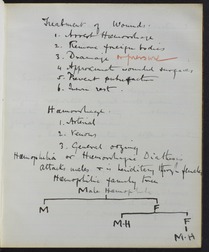 Treatment of Wounds.
1. Arrest Haemorrhage
2. Remove foreign bodies
3. Drainage
4. Approximate wounded surfaces
5. Prevent putrefaction
6. Secure rest.
Haemorrhage.
1. Arterial
2. Venous
3. General oozing
Haemophilia or Haemorrhagic Diathesis
attacks males & is hereditary through females
Haemophilic family tree
Male Haemophilic
M F
M-H F
M-H